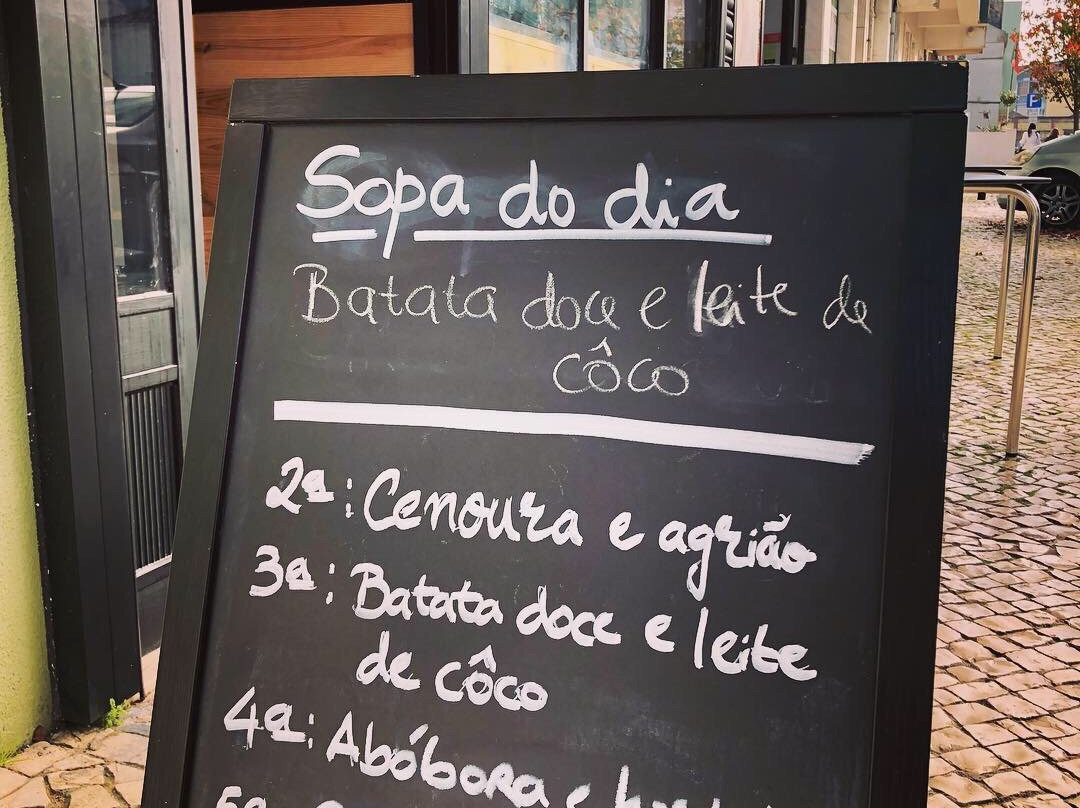 Sopa do dia
Batata doce e leite de
côco
2ª: Cenoura e agrião
3ª: Batata doce e leite
de côco
4ª: Abóbora e
5ª
P